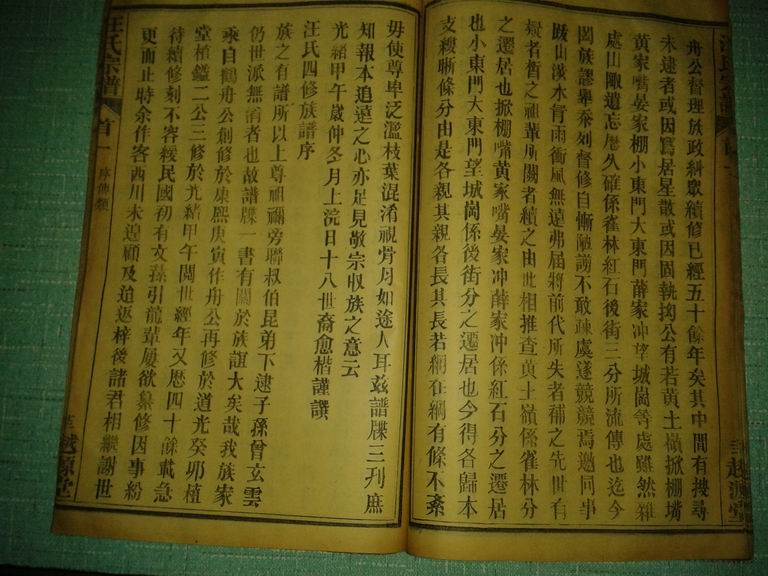 舟公督理族政糾眾續修已經五十餘年矣其中間有搜尋
未逮者或因寫居星散或因固執拗公有若黃土嶺掀棚嘴
黃家嘴晏家棚小東門大東門薛家冲望城崗等處雖然雜
處山陬遺忘曆久確係雀林紅石後街三分所流傳也迄今
闔族謬舉泰列督修自慚陋謭不敢疎虞遂競競焉邀同事
跋山涉水胥雨衝風無遠弗屆將前代所失者補之先世有
疑者晳之祖輩所闕者續之由此相推查黃土嶺係雀林分
之遷居也掀棚嘴黃家嘴晏家冲薛家冲係紅石分之遷居
也小東門大東門望城崗係後街分之遷居也今得各歸本
支縷晰條分由是各親其親各長其長若網在綱有條不紊
毋使尊卑泛濫枝葉混淆視骨肉如途人耳茲譜牒三刋庶
知報本追遠之心亦足見敬宗収族之意云
光緒甲午歲仲冬月上浣日十八世裔愈楷謹譔
汪氏四修族譜序
族之有譜所以上尊祖禰旁聯叔伯昆弟下逮子孫曾玄雲
仍世派無淆者也故譜牒一書有關於族誼大矣哉我族家
乘自鶴舟公創修於康熙庚寅作舟公再修於道光癸卯植
堂植鎰二公三修於光緒甲午閱世經年又歷四十餘載急
待續修刻不容緩民國初有文蓀引龍輩屢欲纂修因事紛
更而止時余作客西川未遑顧及迨返梓後諸君相繼謝世
汪氏宗譜
首一
序傳類
越源堂